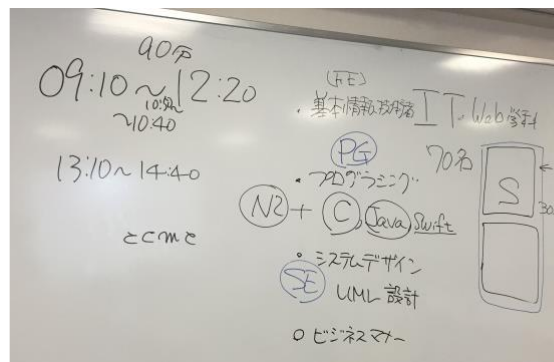 90分
09:10〜12:20
10:50〜
〜10:40
13:10〜14:40
(FE)
・基本情報技術者 IT・Web学科
PG
70名
・プログラミング
N2 + C, Java, Swift
S
30
・システムデザイン
SE
UML 設計
○ビジネスマナー